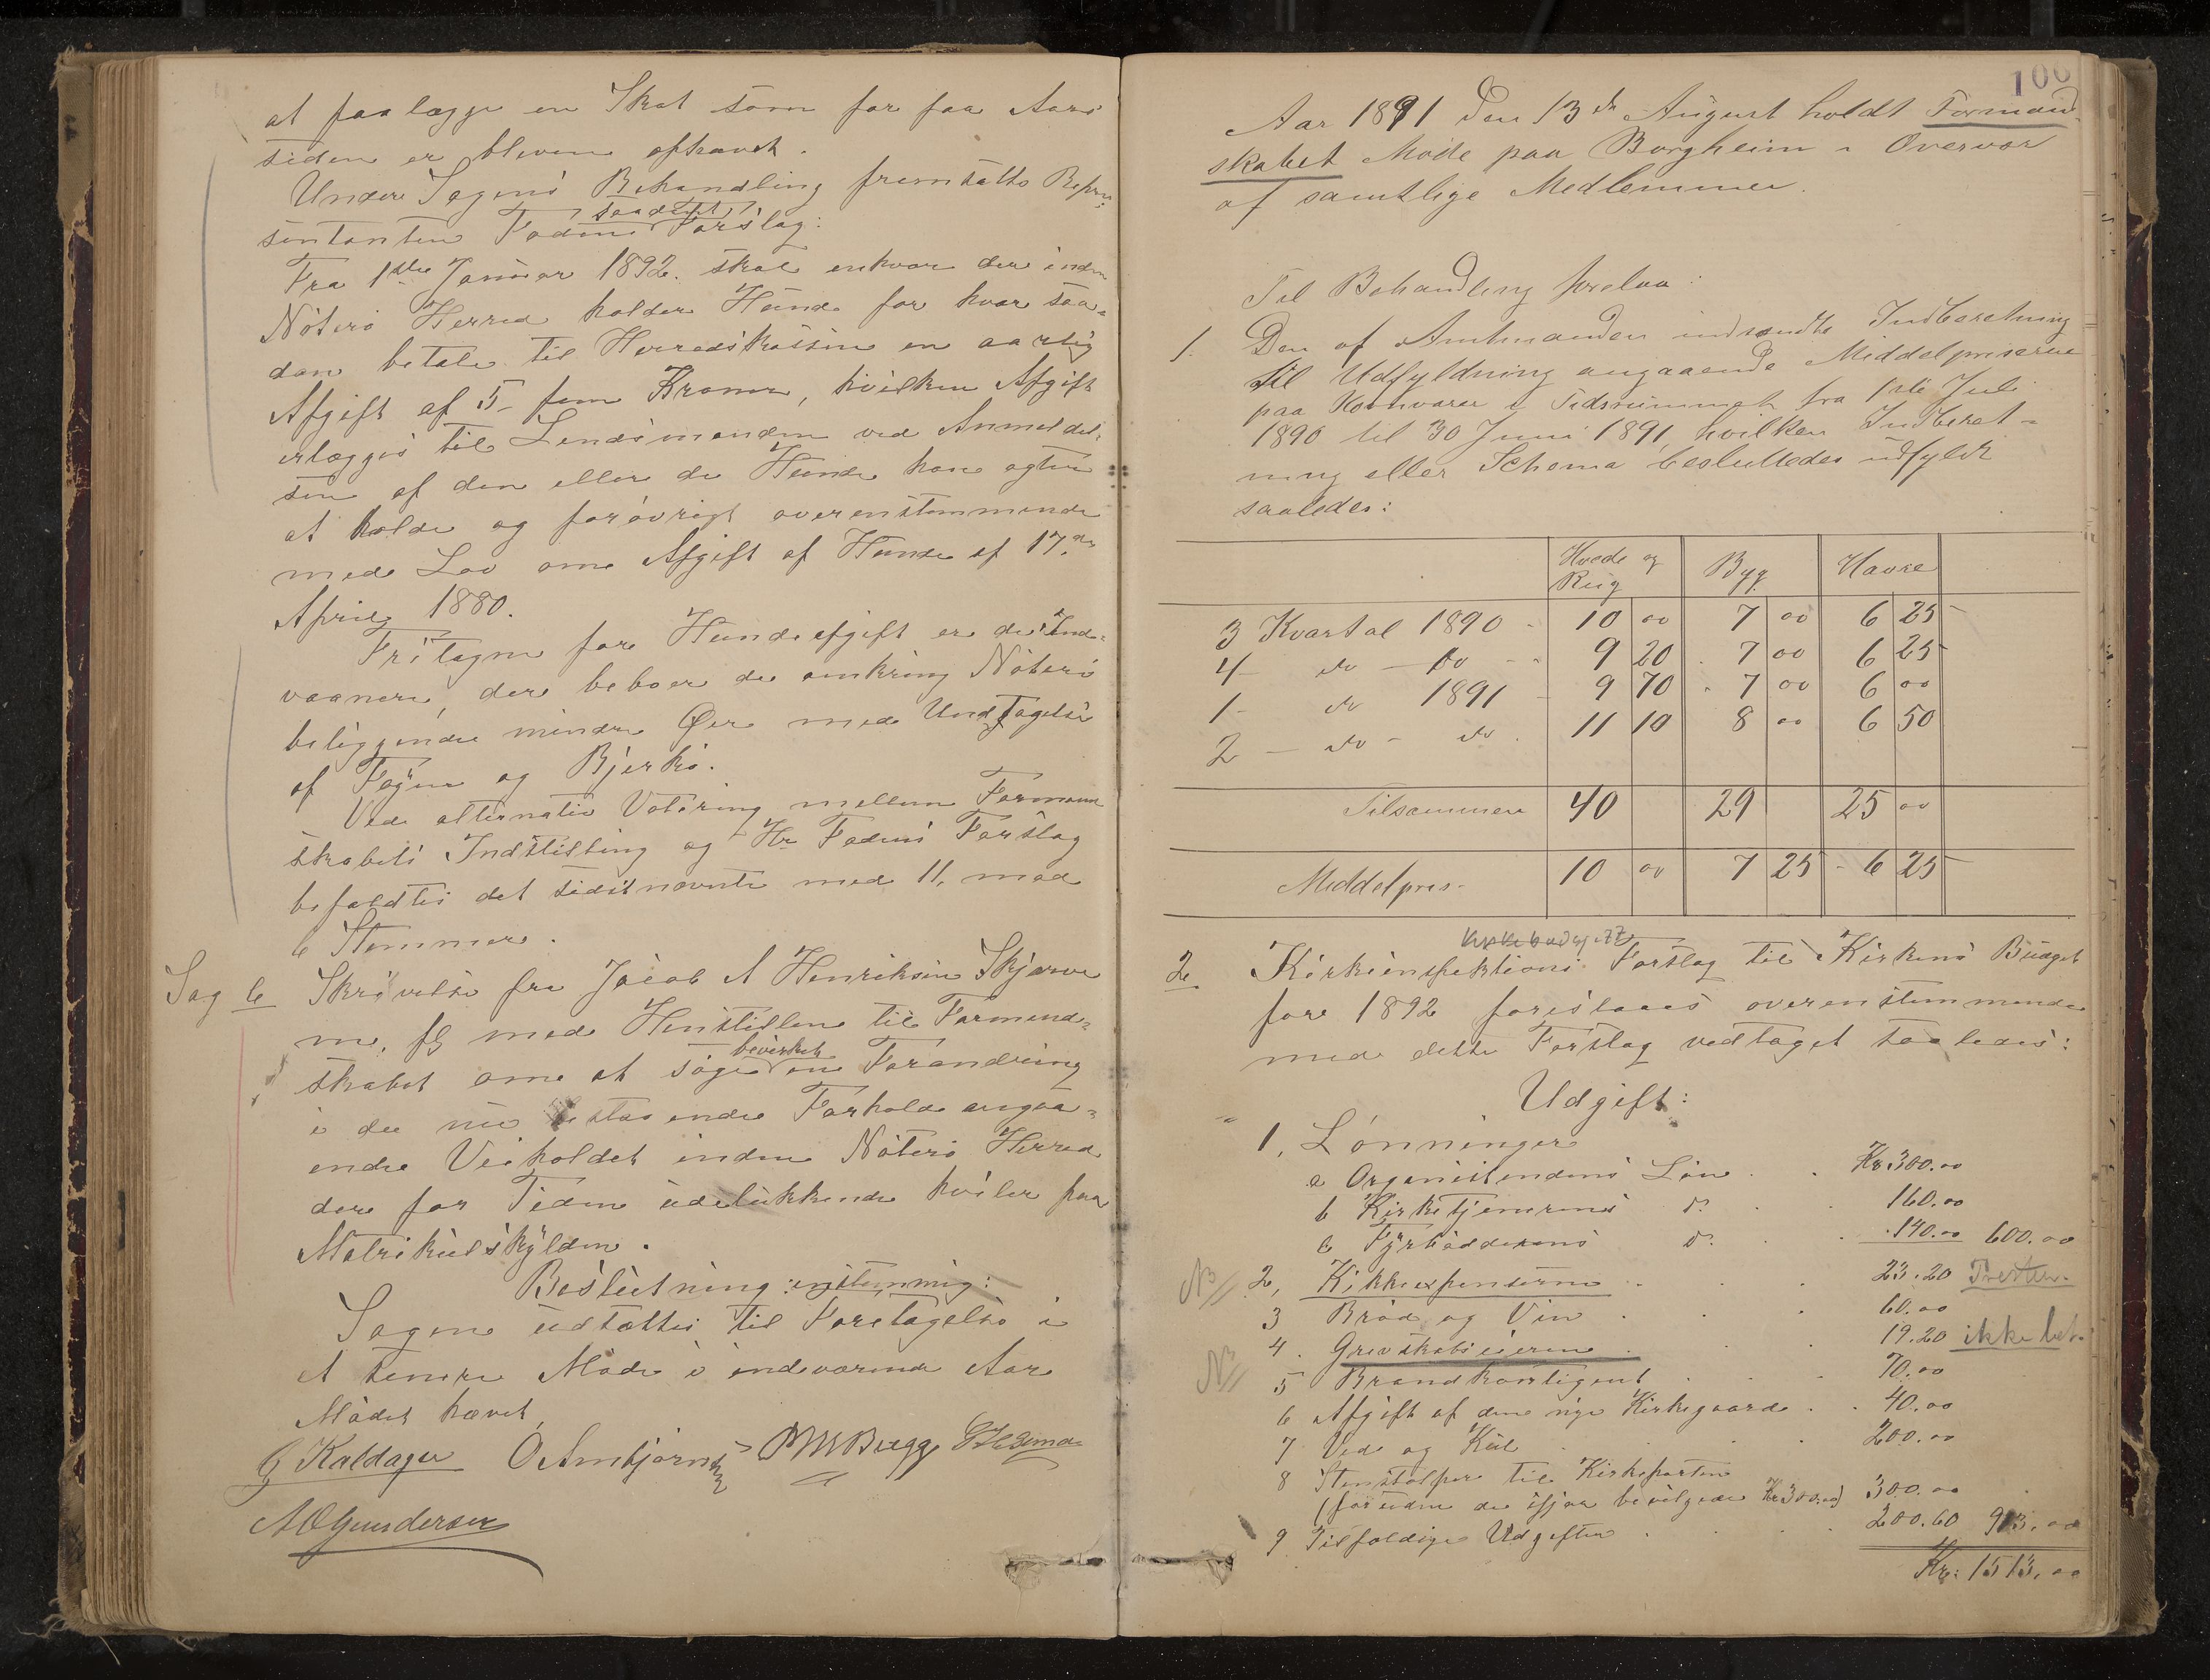 at paalægge en Skat som for faa Aar
siden er bleven ophævet.
Under Sagens Behandling fremsatte Repræ-
saadant
sentanten Fodens Forslag:
Fra 1ste Januar 1892 skal enhver der inden
Nøterø Herred holder Hunde for hver saa-
dan betale til Herredskassen en aarlig
Afgift af 5 - fem Kroner, hvilken Afgift
erlægges til Lensmanden ved Anmeldel-
sen af den eller de Hunde han agter
at holde og forøvrigt overensstemmende
med Lov om Afgift af Hunde af 17de
April 1880.
Fritagne for Hundeafgift er de Ind-
vaanere, der beboer de omkring Nøterø
beliggende mindre Øer med Undtagelse
af Føynen og Bjerkø.
Ved alternativ Votering mellem Formand
skabets Indstilling og Hr Fodens Forslag
befaldtes det sidstnævnte med 11, mod
6 Stemmer.
Sag 6 Skrivelse fra Jacob A Henriksen Skjærve
me, fl med Henstillen til Formand-
bevirket
skabet om at søge en Forandring
i de nu bestaaende Forholde angaa-
ende Veiholdet inden Nøterø Herred
der for Tiden udelukkende hviler paa
Matrikulskylden.
Beslutning: enstemmig:
Sagen udsattes til Foretagelse i
et senere Møde i indeværende Aar
Mødet hævet
G Kaldager O Ambjørnsen
A O Gundersen
100
Aar 1891 den 13de August holdt Formand-
skabet Møde paa Borgheim i Overvær
af samtlige Medlemmer.
Til Behandling forelaa:
1. Den af Amtmanden indsendte Indberetning
til Udfyldning angaaende Middelpriserne
paa Kornvarer i Tidsrummet fra 1ste Juli
1890 til 30 Juni 1891, hvilken Indberet-
ning eller Schema besluttedes udfyldt
saaledes:
Hvede og Rug Byg Havre
3 Kvartal 1890 - 10 00 7 00 6 25
4 - do - do - 9 20 7 00 6 25
1 - do 1891 - 9 70 7 00 6 00
2 - do - do . 11 10 8 00 6 50
Tilsammen 40 29 25 00
Middelpris - 10 00 7 25 - 6 25
Kirkebudgett
2 Kirkeinspektions Forslag til Kirkens Budget
for 1892 foreslaaes overensstemmende
med dette Forslag vedtaget saaledes:
Udgift:
1, Lønninger
a Organistendens Løn . . Kr 300.00
b Kirketjenerens do . . 160.00
c Fyrbødderens do . . 140.00 600.00
NB 2, Kirkeexpenserne . . 23.20 Presten.
3 Brød og Vin . . . 60.00
NB 4. Grevskabseieren . . 19.20 ikke bet.
5 Brandkontigent . . . 70.00
6 Afgift af den nye Kirkegaard . . 40.00
7 Ved og Kul . . . 200.00
8 Stenstolper til Kirkeporten
(foruden de ifjor bevilgede Kr 300.00) 300.00
9 Tilfældige Udgifter . . . 200.60 913.00
Kr: 1513.00